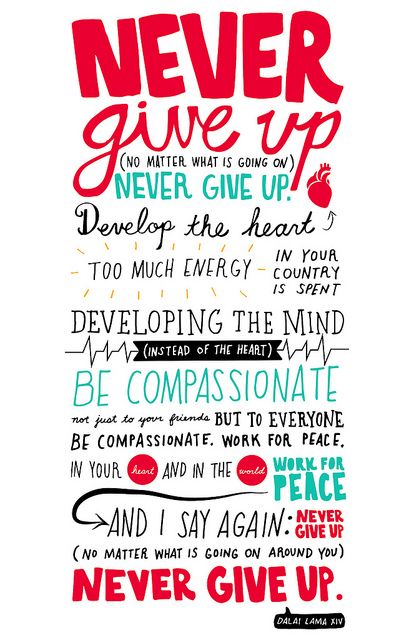 NEVER
give up
(NO MATTER WHAT IS GOING ON)
NEVER GIVE UP.
Develop the heart
TOO MUCH ENERGY
IN YOUR
COUNTRY
IS SPENT
DEVELOPING THE MIND
(INSTEAD OF THE HEART)
BE COMPASSIONATE
not just to your friends BUT TO EVERYONE
BE COMPASSIONATE. WORK FOR PEACE.
IN YOUR heart AND IN THE world
WORK FOR
PEACE
AND I SAY AGAIN:
NEVER
GIVE UP
(NO MATTER WHAT IS GOING ON AROUND YOU)
NEVER GIVE UP.
DALAI LAMA XIV